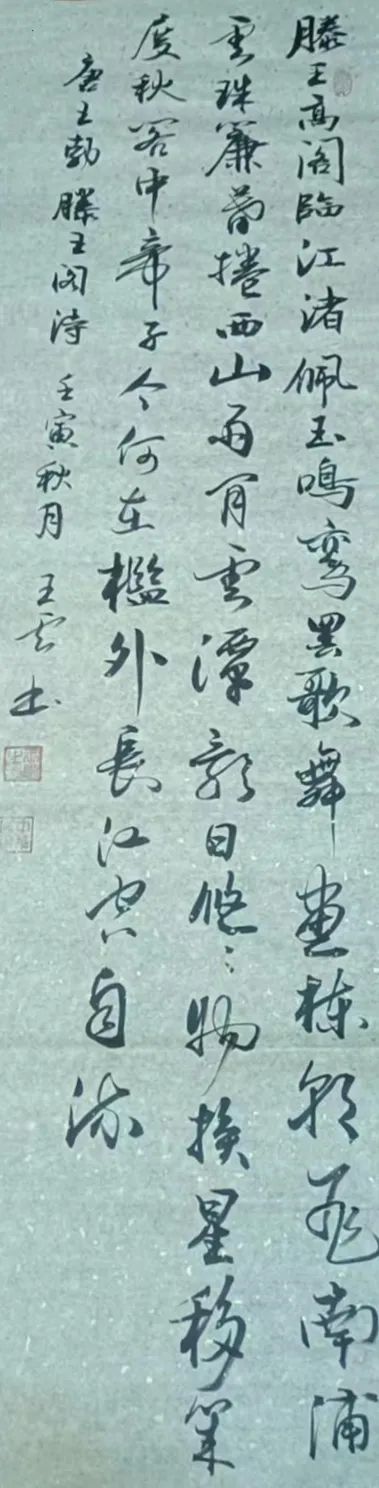 滕王高阁臨江渚佩玉鳴鸾罢歌舞画栋朝飞南浦
雲珠簾暮捲西山雨闲雲潭影日悠々物换星移几
度秋阁中帝子今何在檻外長江空自流
唐王勃滕王阁诗 壬寅秋月 王云书